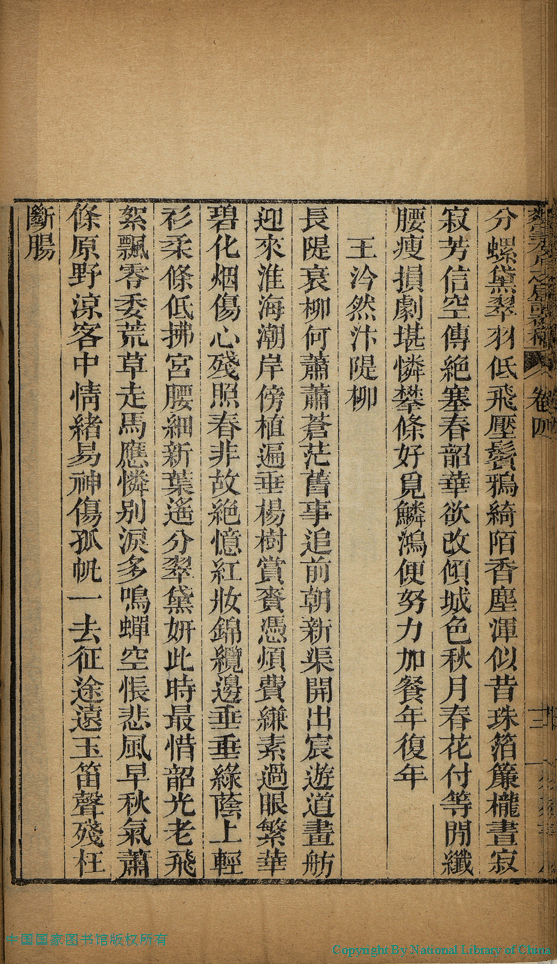 分螺黛翠羽低飛壓鬢鴉綺陌香塵渾似昔珠箔簾櫳晝寂
寂芳信空傳絶塞春韶華欲改傾城色秋月春花付等閒纖
腰瘦損劇堪憐攀條好覓鱗鴻便努力加餐年復年
王泠然汴隄柳
長隄衰柳何蕭蕭蒼茫舊事追前朝新渠開出宸遊道畫舫
迎來淮海潮岸傍植遍垂楊樹賞賚憑煩費縑素過眼繁華
碧化烟傷心殘照春非故絶憶紅妝錦纜邊垂垂綠蔭上輕
衫柔條低拂宮腰細新葉遙分翠黛妍此時最惜韶光老飛
絮飄零委荒草走馬應憐别淚多鳴蟬空悵悲風早秋氣蕭
條原野涼客中情緒易神傷孤帆一去征途遠玉笛聲殘枉
斷腸
卷四
中国国家图书馆版权所有
Copyright By National Library of China